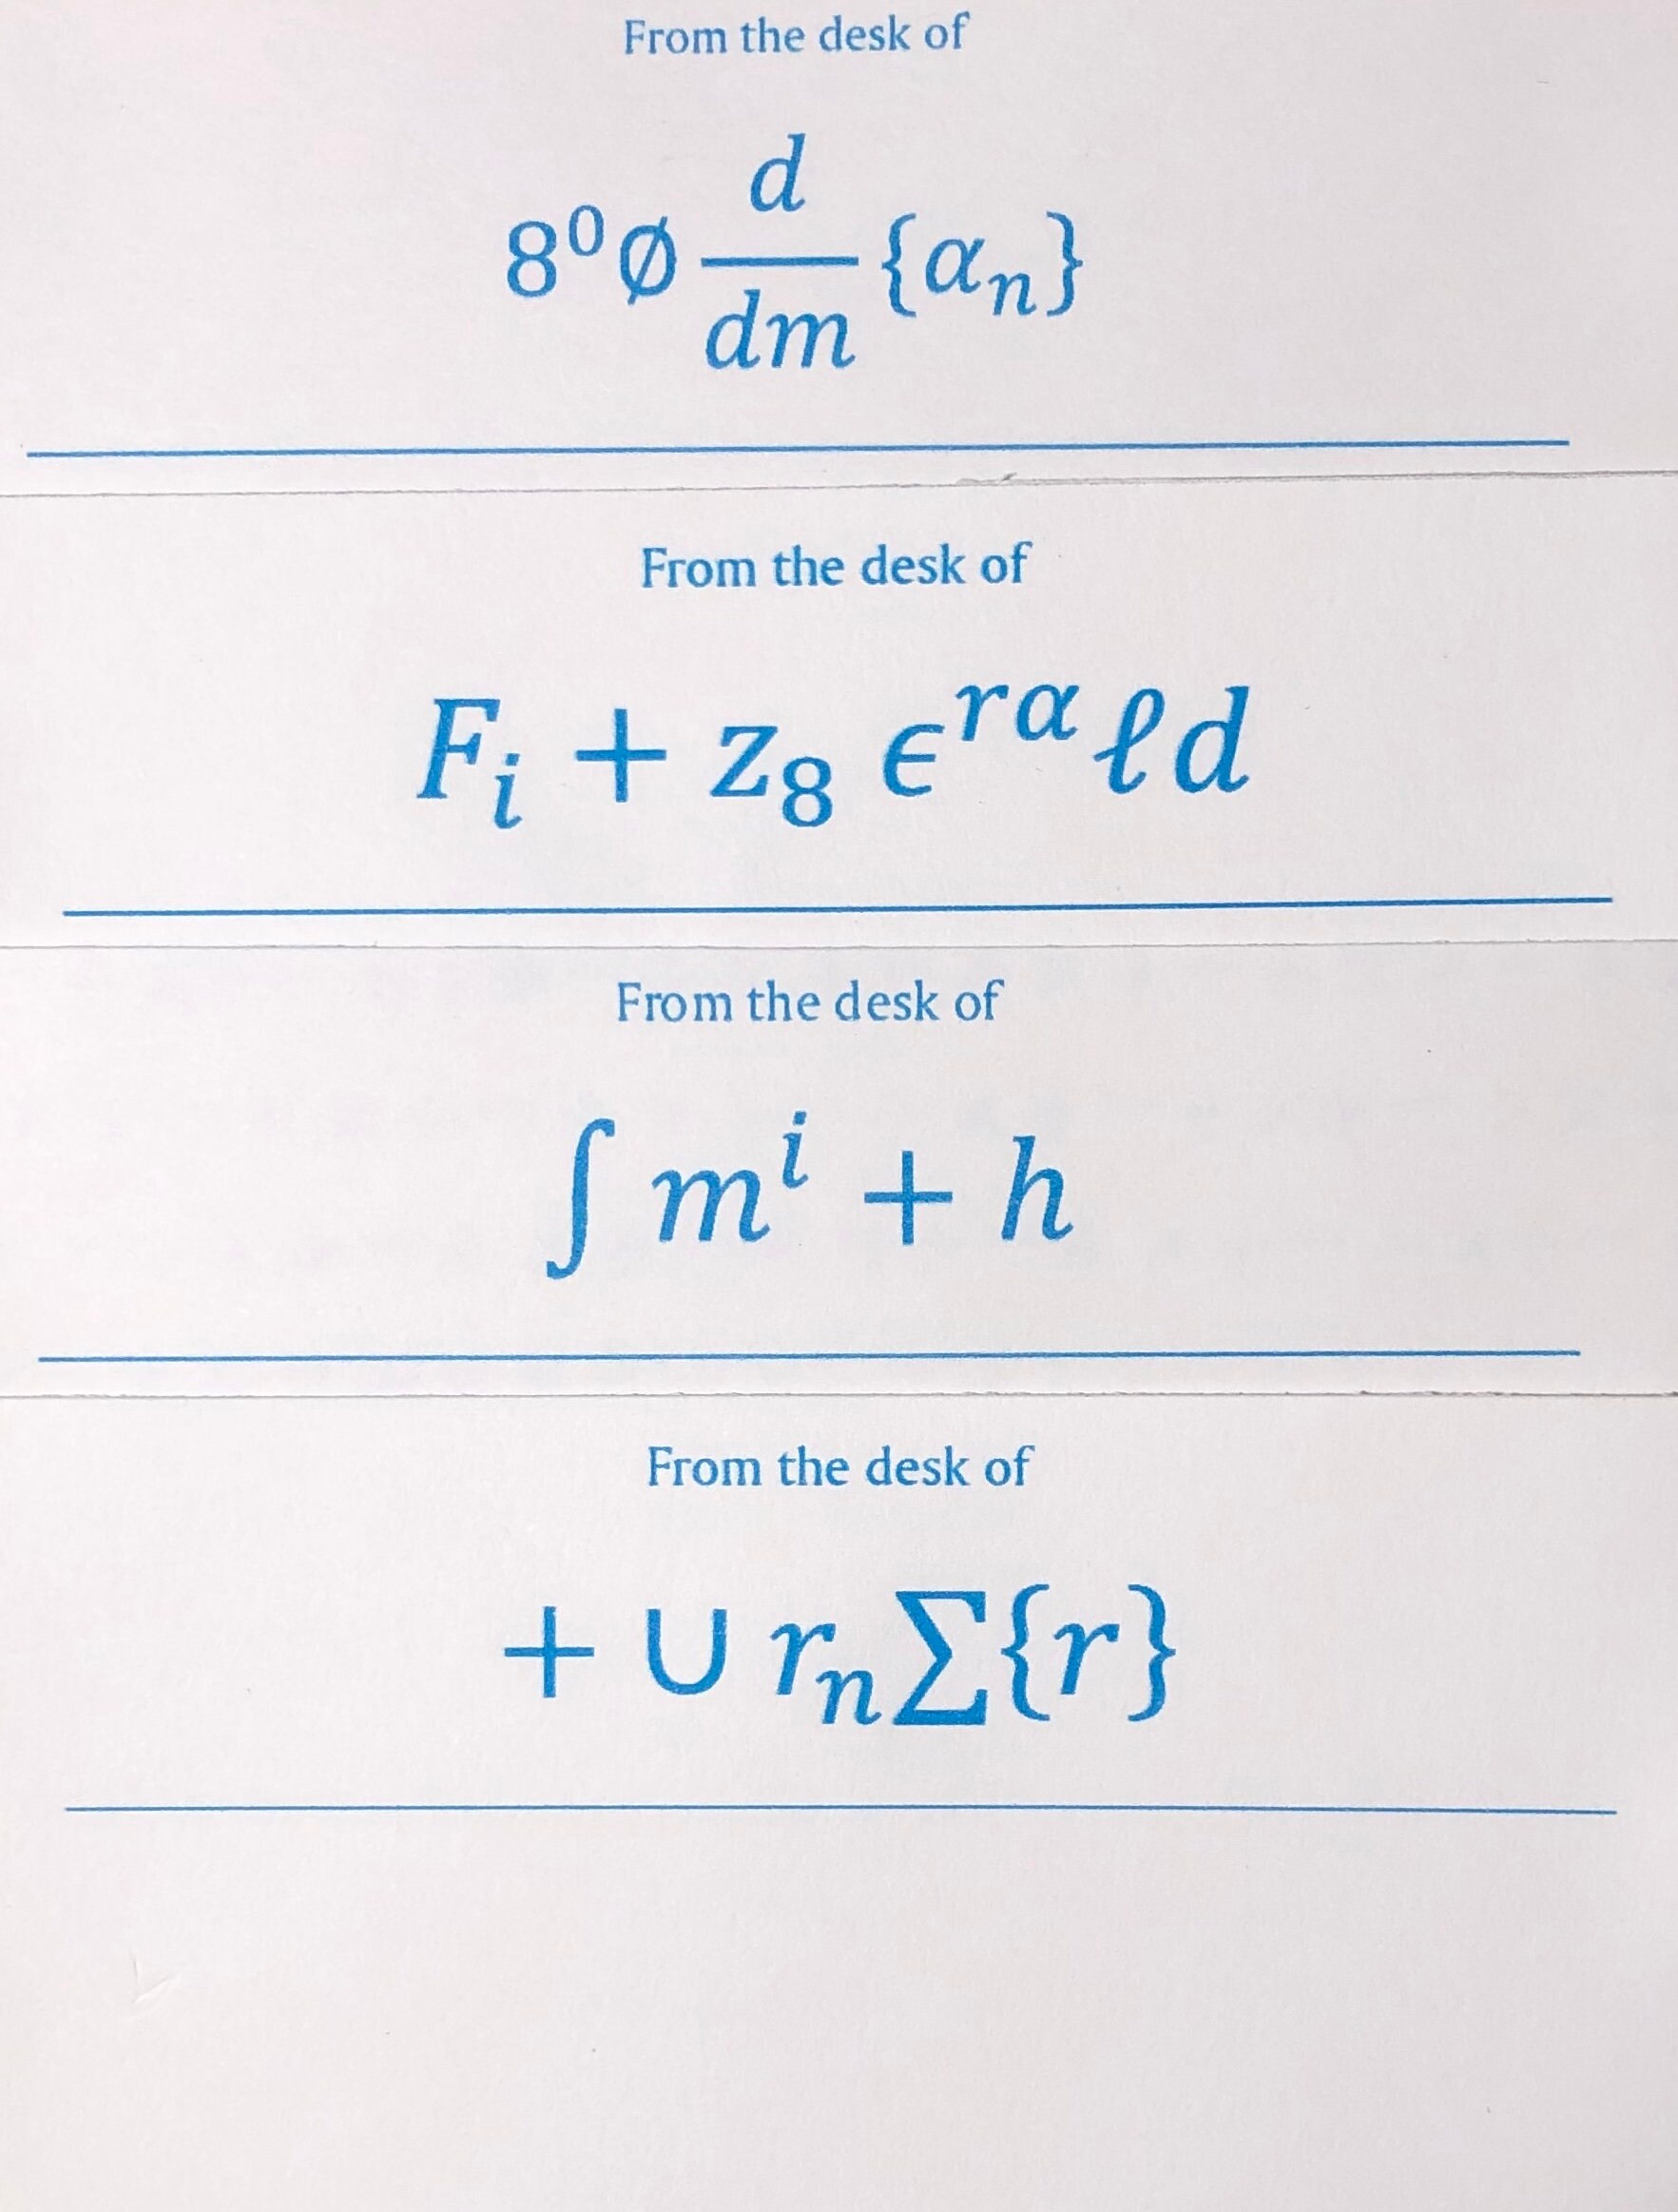 From the desk of
8⁰∅ d/dm {αₙ}
From the desk of
Fᵢ + z₈ ϵ^{rα} ℓd
From the desk of
∫ mⁱ + h
From the desk of
+ ∪ rₙΣ{r}